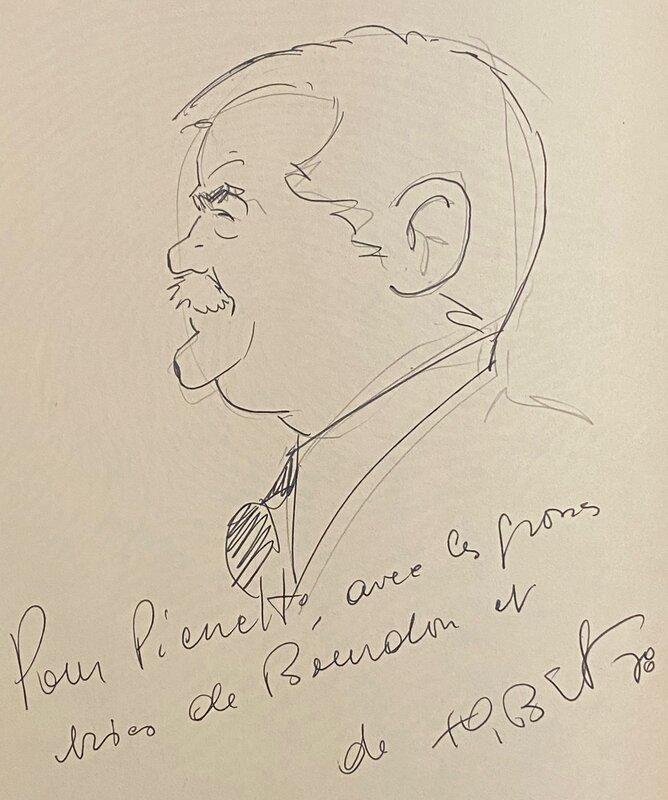 Pour Pierrette, avec les grosses
bises de Bourdon et
de TIBET